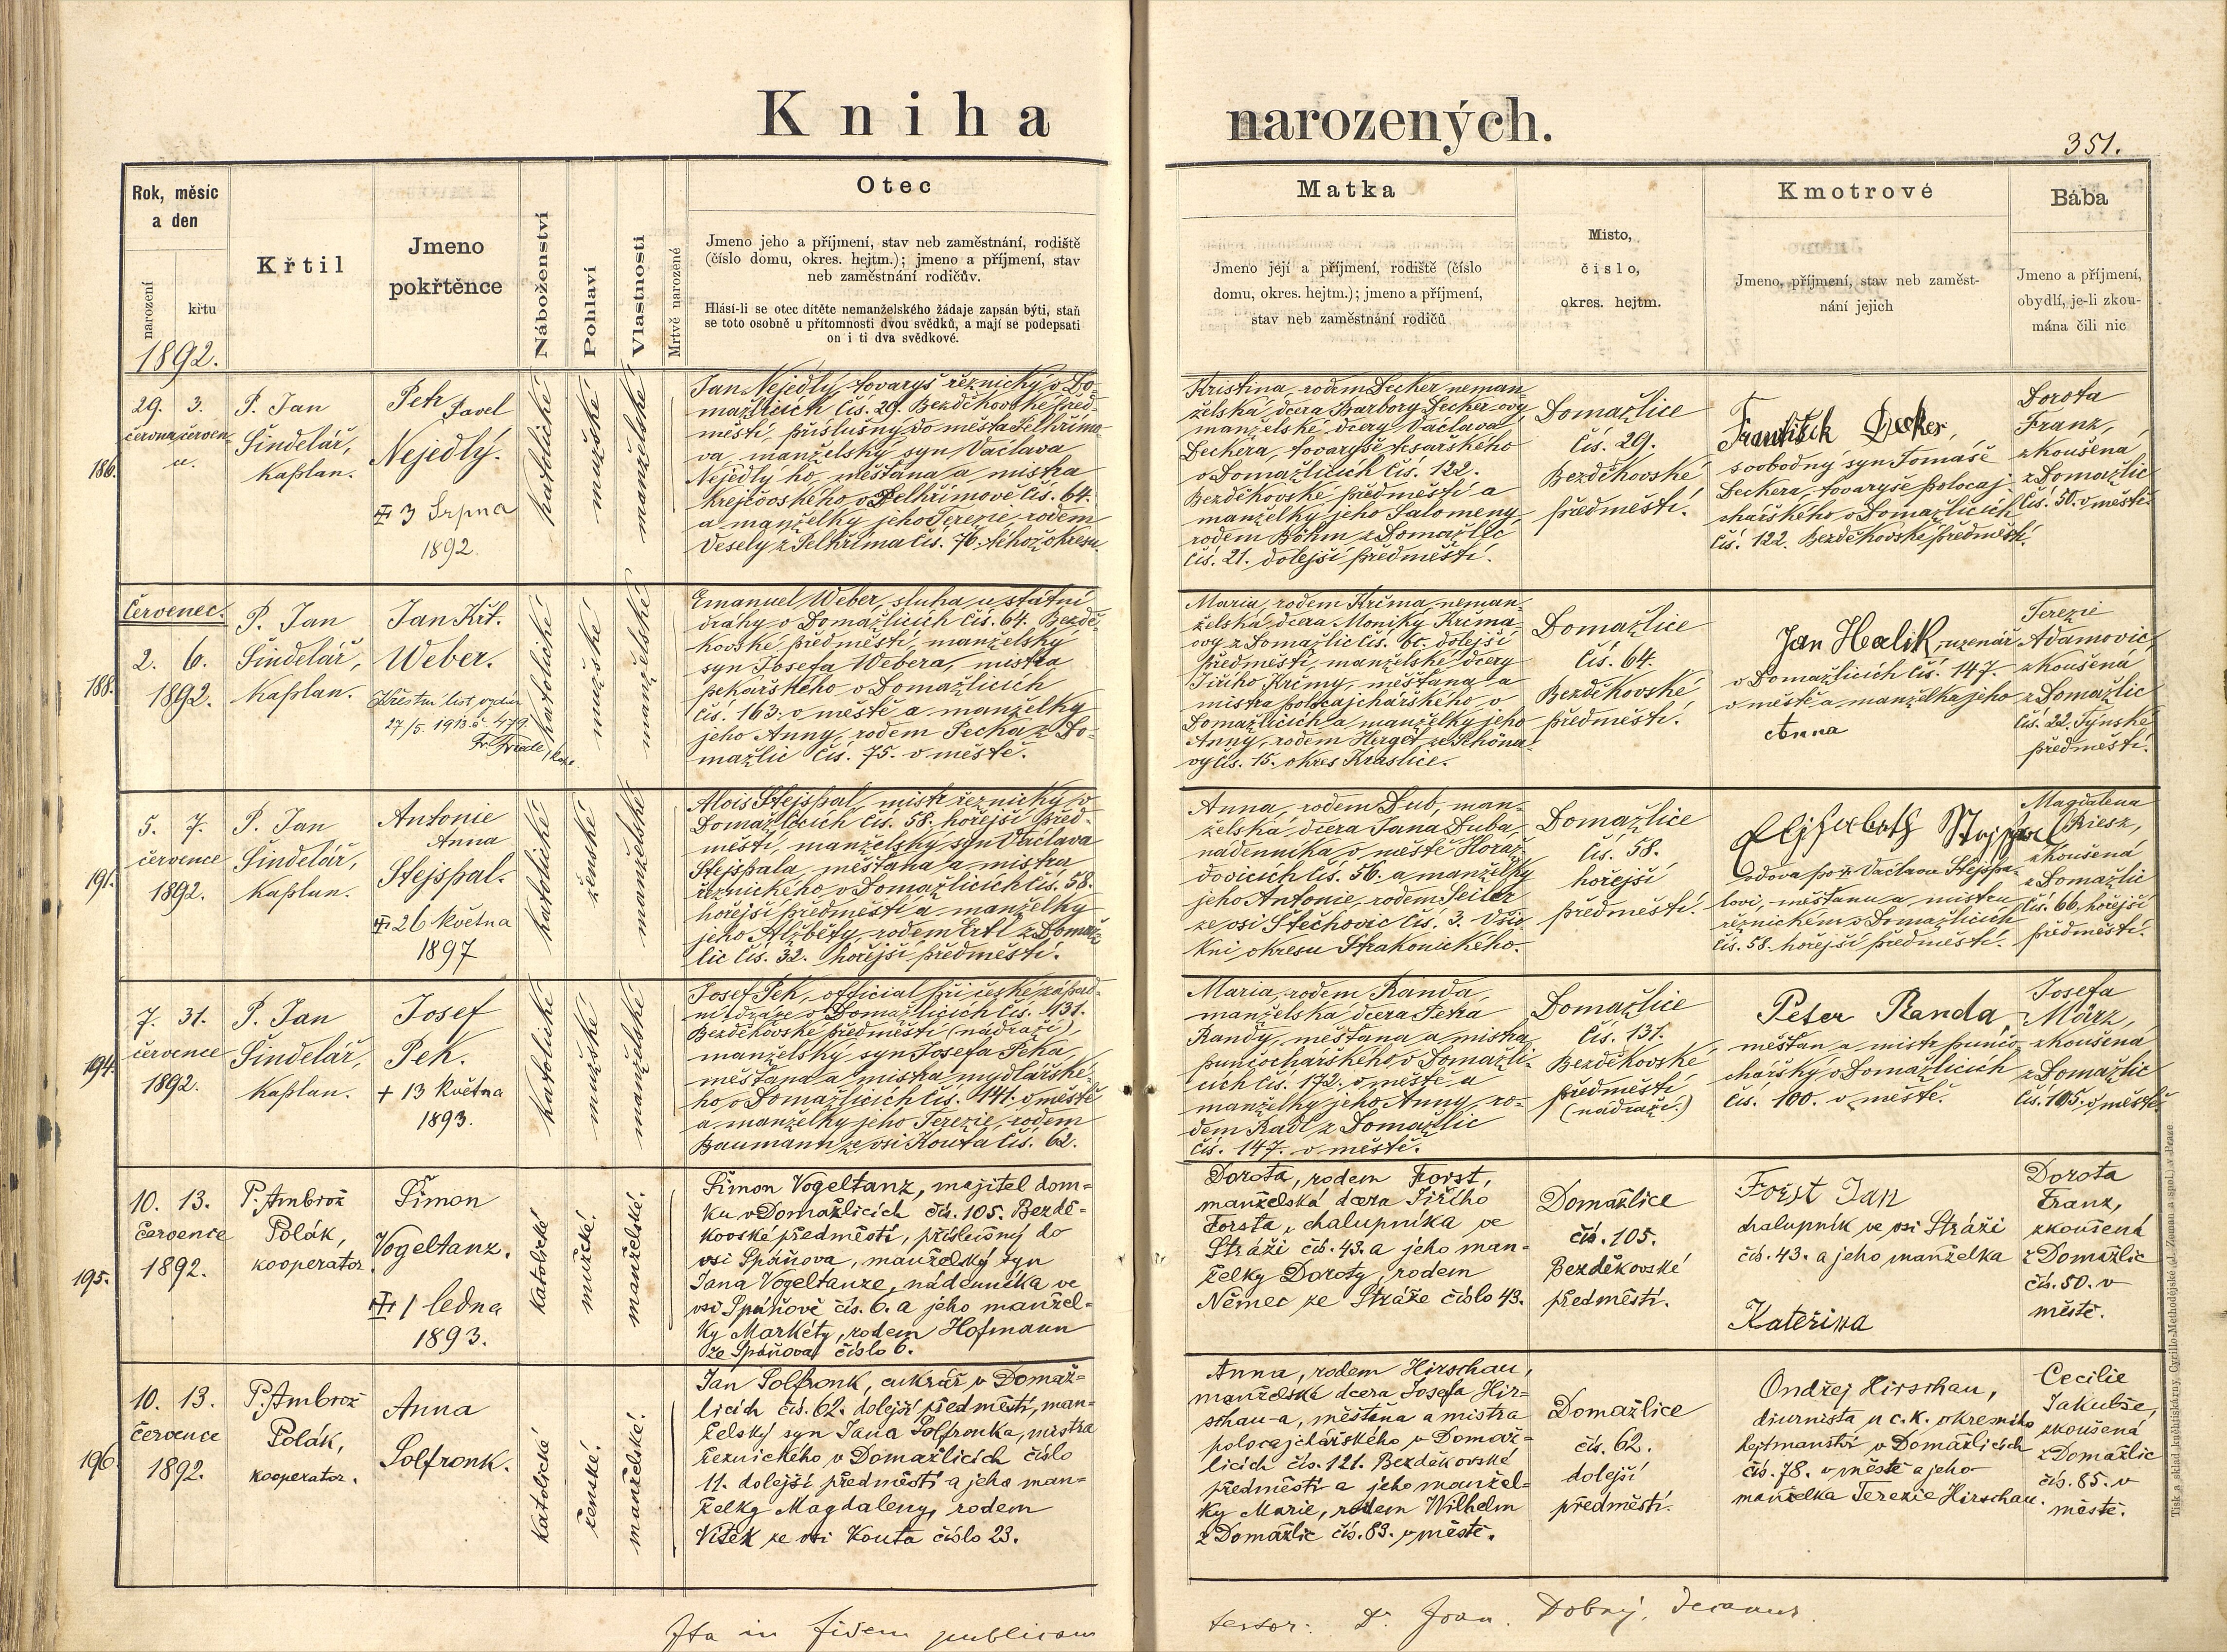 Kniha narozených.
351.
Rok, měsíc
a den
narození
křtu
1892.
Křtil
Jmeno
pokřtěnce
Náboženství
Pohlaví
Vlastnosti
Mrtvě narozené
Otec
Jmeno jeho a příjmení, stav neb zaměstnání, rodiště
(číslo domu, okres. hejtm.); jmeno a příjmení, stav
neb zaměstnání rodičův.
Hlásí-li se otec dítěte nemanželského žádaje zapsán býti, staň
se toto osobně u přítomnosti dvou svědků, a mají se podepsati
on i ti dva svědkové.
Matka
Jmeno její a příjmení, rodiště (číslo
domu, okres. hejtm.); jmeno a příjmení,
stav neb zaměstnání rodičů
Misto,
číslo,
okres. hejtm.
Kmotrové
Jmeno, příjmení, stav neb zaměst-
nání jejich
Bába
Jmeno a příjmení,
obydlí, je-li zkou-
mána čili nic
186.
29. 3.
června červen-
P. Jan
Šindelář,
kaplan.
Petr Pavel
Nejedlý.
3 Srpna
1892.
katolické
mužské
manželské
Jan Nejedlý, tovaryš řeznický v Do-
mažlicích čís. 29. Bezděkovské před-
městí, příslušný do města Pelhřimo-
va, manželský syn Václava
Nejedlý ho, měšťana a mistra
krejčovského v Pelhřimově čís. 64.
a manželky jeho Terezie, rodem
Veselý z Pelhřima čís. 76. téhož okresu.
Kristina, rodem Decker, neman-
želská dcera Barbory Decker-ovy,
manželské dcery Václava
Deckera, tovaryše tesařského
v Domažlicích čís. 122.
Bezděkovské předměstí a
manželky jeho Salomeny,
rodem Böhm z Domažlic
čís. 21. dolejší předměstí.
Domažlice
čís. 29.
Bezděkovské
předměstí.
František Decker,
svobodný syn Tomáše
Deckera, tovaryše polocaj
chářského v Domažlicích
čís. 122. Bezděkovské předměstí.
Dorota
Franz,
zkoušená
z Domažlic
čís. 50. v městě.
188.
Červenec.
2. 6.
1892.
P. Jan
Šindelář,
kaplan.
Jan Křt.
Weber.
Křestní list vydán
27/5 1913 č. 479.
katolické
mužské
manželské
Emanuel Weber, sluha u státní
dráhy v Domažlicích čís. 64. Bezdě-
kovské předměstí, manželský
syn Josefa Webera, mistra
pekařského v Domažlicích
čís. 163. v městě a manželky
jeho Anny, rodem Pecka z Do-
mažlic čís. 75. v městě.
Maria, rodem Krčma, neman-
želská dcera Moniky Krčma-
ovy z Domažlic čís. 60. dolejší
předměstí, manželské dcery
Jiřího Krčmy, měšťana a
mistra polocajchářského v
Domažlicích a manželky jeho
Anny, rodem Herget ze Schöna-
vy čís. 15. okres Kraslice.
Domažlice
čís. 64.
Bezděkovské
předměstí.
Jan Healik, uzenář
v Domažlicích čís. 147.
v městě a manželka jeho
Anna
Terezie
Adamovic,
zkoušená
z Domažlic
čís. 22. Týnské
předměstí.
191.
5. 7.
července
1892.
P. Jan
Šindelář,
kaplan.
Antonie
Anna
Stejspal.
26 Května
1897
katolické
ženské
manželské
Alois Stejspal, mistr řeznický v
Domažlicích čís. 58. hořejší před-
městí, manželský syn Václava
Stejspala, měšťana a mistra
řeznického v Domažlicích čís. 58.
hořejší předměstí a manželky
jeho Alžběty, rodem Ertl z Domaž-
lic čís. 32. hořejší předměstí.
Anna, rodem Dub, man-
želská dcera Jana Duba,
nádenníka v městě Horaž-
ďovicích čís. 56. a manželky
jeho Antonie, rodem Seiler
ze vsi Štěchovic čís. 3. Všio
kni okresu Strakonického.
Domažlice
čís. 58.
hořejší
předměstí.
vdova po Václavu Stejspa-
lovi, měšťanu a mistru
řeznickém v Domažlicích
čís. 58. hořejší předměstí.
Magdalena
Riesz,
zkoušená
z Domažlic
čís. 66. hořejší
předměstí.
194.
7. 31.
července
1892.
P. Jan
Šindelář,
kaplan.
Josef
Pek.
+ 13 Května
1893.
katolické
mužské
manželské
Josef Pek, official při české západ-
ní dráze v Domažlicích čís. 131.
Bezděkovské předměstí (nádraží),
manželský syn Josefa Peka,
měšťana a mistra mydlářské-
ho v Domažlicích čís. 141. v městě
a manželky jeho Terezie, rodem
Baumann ze vsi Kouta čís. 62.
Maria, rodem Randa,
manželská dcera Petra
Randy, měšťana a mistra
punčochářského v Domažli-
cích čís. 172. v městě a
manželky jeho Anny, ro-
dem Radl z Domažlic
čís. 147. v městě.
Domažlice
čís. 131.
Bezděkovské
předměstí
(nádraží.)
Peter Randa,
měšťan a mistr punčo-
chářský v Domažlicích
čís. 100. v městě.
Josefa
März,
zkoušená
z Domažlic
čís. 105. v městě.
195.
10. 13.
července
1892.
P. Ambrož
Polák,
kooperator.
Šimon
Vogeltanz.
1 ledna
1893.
katolické
mužské.
manželské.
Šimon Vogeltanz, majitel dom-
ku v Domažlicích čís. 105. Bezdě-
kovské předměstí, příslušný do
vsi Spáňova, manželský syn
Jana Vogeltanze, nádenníka ve
vsi Spáňově čís. 6. a jeho manžel-
ky Markéty, rodem Hofmann
ze Spáňova číslo 6.
Dorota, rodem Forst,
manželská dcera Jiřího
Forsta, chalupníka ve
Stráži čís. 43. a jeho man-
želky Doroty, rodem
Němec ze Stráže číslo 43.
Domažlice
čís. 105.
Bezděkovské
předměstí.
Forst Jan
chalupník ve vsi Stráži
čís. 43. a jeho manželka
Kateřina
Dorota
Franz,
zkoušená
z Domažlic
čís. 50. v
městě.
196.
10. 13.
července
1892.
P. Ambrož
Polák,
kooperator.
Anna
Solfronk.
katolické
ženské.
manželské.
Jan Solfronk, cukrář v Domaž-
licích čís. 62. dolejší předměstí, man-
želský syn Jana Solfronka, mistra
řeznického v Domažlicích číslo
11. dolejší předměstí a jeho man-
želky Magdaleny, rodem
Vítek ze vsi Kouta číslo 23.
Anna, rodem Hirschau,
manželská dcera Josefa Hir-
schau-a, měšťana a mistra
polocajchářského v Domaž-
licích čís. 121. Bezděkovské
předměstí a jeho manžel-
ky Marie, rodem Wilhelm
z Domažlic čís. 83. v městě.
Domažlice
čís. 62.
dolejší
předměstí.
Ondřej Hirschau,
diurnista u c. k. okresního
hejtmanství v Domažlicích
čís. 78. v městě a jeho
manželka Terezie Hirschau.
Cecilie
Jakubše,
zkoušená
z Domažlic
čís. 85. v
městě.
Ita in fidem publicam
testor: Dr. Joan. Dobrý, decanus.
Tisk a sklad knihtiskárny Cyrillo-Methodějské (J. Zeman a spol.) v Praze.